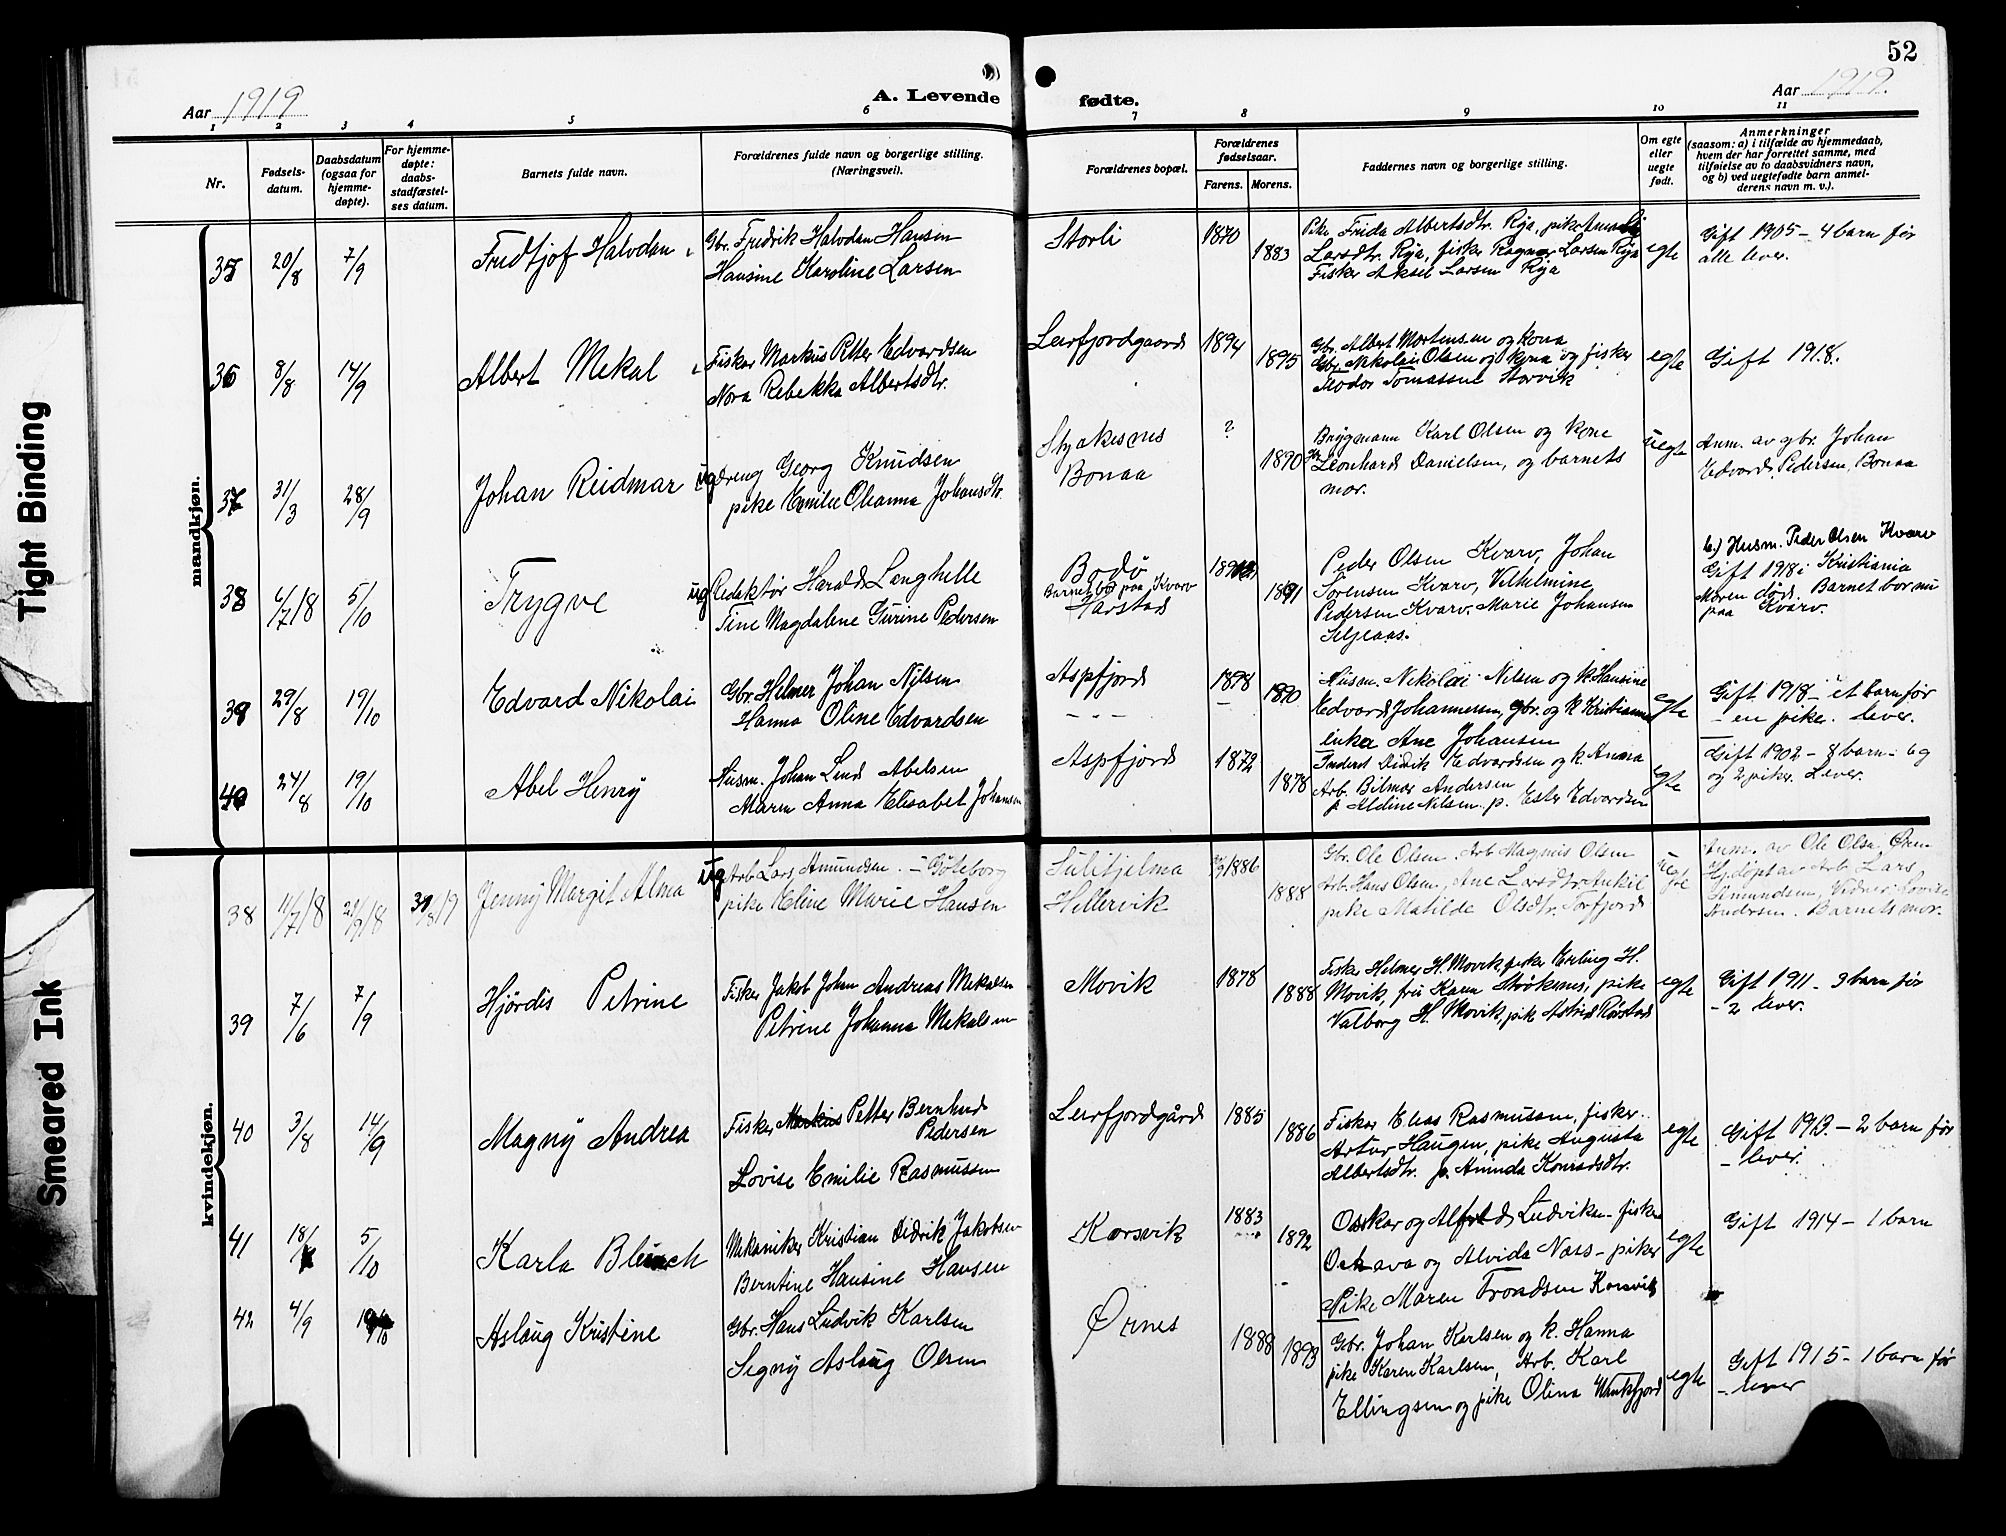 52
Aar 1919
A. Levende
fødte.
Aar 1919.
1 2 3 4 5 6 7 8 9 10 11
Nr.
Fødsels-
datum.
Daabsdatum
(ogsaa for
hjemme-
døpte).
For hjemme-
døpte:
daabs-
stadfæstel-
ses datum.
Barnets fulde navn.
Forældrenes fulde navn og borgerlige stilling.
(Næringsvei).
Forældrenes bopæl.
Forældrenes
fødselsaar.
Farens. Morens.
Faddernes navn og borgerlige stilling.
Om egte
eller
uegte
født.
Anmerkninger
(saasom: a) i tilfælde av hjemmedaab,
hvem der har forrettet samme, med
tilføielse av to daabsvidners navn,
og b) ved uegtefødte barn anmel-
derens navn m. v.).
mandkjøn.
35 20/8 7/9 Fridtjof Halvdan
Gbr. Fredrik Halvdan Hansen
Hansine Karoline Larsen
Storli 1870 1883
Pike Frida Albertsdtr. Røja, pike
Larsdtr. Røja, fisker Ragnar Larsen Røja
Fisker Aksel Larsen Røja
egte
Gift 1905 - 4 barn før
alle lever.
36 8/8 14/9 Albert Mekal
Fisker Markus Petter Edvardsen
Nora Rebekka Albertsdtr.
Leirfjordgaard 1894 1895
Gbr. Albert Mortensen og kona
Gbr. Nikolai Olsen og kona og fisker
Tomassen Storvik
egte
Gift 1918.
37 31/3 28/9 Johan Reidmar
ug dreng Georg Knudsen
pike Emilie Oleanna Johansdtr.
Styrkesnes
Bonaa
? 1890
Brygmann Karl Olsen og kone
Leonhard Danielsen, og barnets
mor.
uegte
Anm. av gbr. Johan
Edvard Pedersen, Bonaa
38 4/7 18 5/10 Trygve
ug Redaktør Harald Langhelle
Tine Magdalene Gurine Pedersen
Bodø
Barnet bor paa Kvarv
Harstad
1891
Peder Olsen Kvarv, Johan
Sørensen Kvarv, Vilhelmine
Pedersen Kvarv. Marie Johansen
Seljeaas.
b.) Husm. Peder Olsen Kvarv
Gift 1918 i Kristiania
Moren død. Barnet bor nu
paa Kvarv.
39 29/8 19/10 Edvard Nikolai
Gbr. Helmer Johan Nilsen
Hanna Oline Edvardsen
Aspfjord 1878 1890
Husm. Nikolai Nilsen og k. Hansine
Edvard Johannessen, gbr. og k. Kristianne
enke Ane Johansen
egte
Gift 1918 - et barn før
- en pike. lever.
40 24/8 19/10 Abel Henry
Husm. Johan Lind Abelsen
Maren Anna Elisabet Johansen
Aspfjord 1872 1878
Inderst Didrik Edvardsen og k. Anna
Arb. Bilmar Andersen
p. Aldine Nilsen p. Ester Edvardsen
egte
Gift 1902 - 8 barn - 6 g
og 2 piker. Lever.
kvindekjøn.
38 11/7 18 29/9 18 31/8 19 Jenny Margit Alma
ug Arb. Lars Amundsen - Göteborg
pike Eline Marie Hansen
Sulitjelma
Hellervik
1886 1888
Gbr. Ole Olsen. Arb. Magnus Olsen
Arb. Hans Olsen, Ane Larsdtr.
pike Matilde Olsdtr. Sørfjord
uegte
Anm. av Ole Olsen
Hjdøpt av Arb. Lars
Amundsen, Vidner: Lovise
Andersen. Barnets mor.
39 7/6 7/9 Hjördis Petrine
Fisker Jakob Johan Andreas Mekalsen
Petrine Johanna Mekalsen
Movik 1878 1888
Fisker Helmer H. Movik, fisker Erling H.
Movik, fru Karen Strøksnes, pike
Valborg H. Movik, pik Astrid Rørstad
egte
Gift 1911 - 3 barn før
- 2 lever.
40 3/8 14/9 Magny Andrea
Fisker Markus Petter Bernhard
Pedersen
Lovise Emilie Rasmussen
Leirfjordgård 1885 1886
Fisker Elias Rasmussen, fisker
Artur Haugen, pike Augusta
Albertsdtr. p. Aminda Konradsdtr.
egte
Gift 1913. - 2 barn før
- lever.
41 18/ 5/10 Karla
Mekaniker Kristian Didrik Jakobsen
Berntine Hansine Hansen
Korsvik 1883 1892
Oskar og Alfred Ludviksen - fiskere
og Alvida Næss - piker
Pike Maren Trondsen Korsvik
egte
Gift 1914 - 1 barn
42 4/9 Aslaug Kristine
Gbr. Hans Ludvik Karlsen
Signy Aslaug Olsen
Ørnes 1888 1893
Gbr. Johan Karlsen og k. Hanna
pike Karen Karlsen, Arb. Karl
Ellingsen og pike Olina
egte
Gift 1915 - 1 barn før
- lever
Tight Binding
Smeared Ink